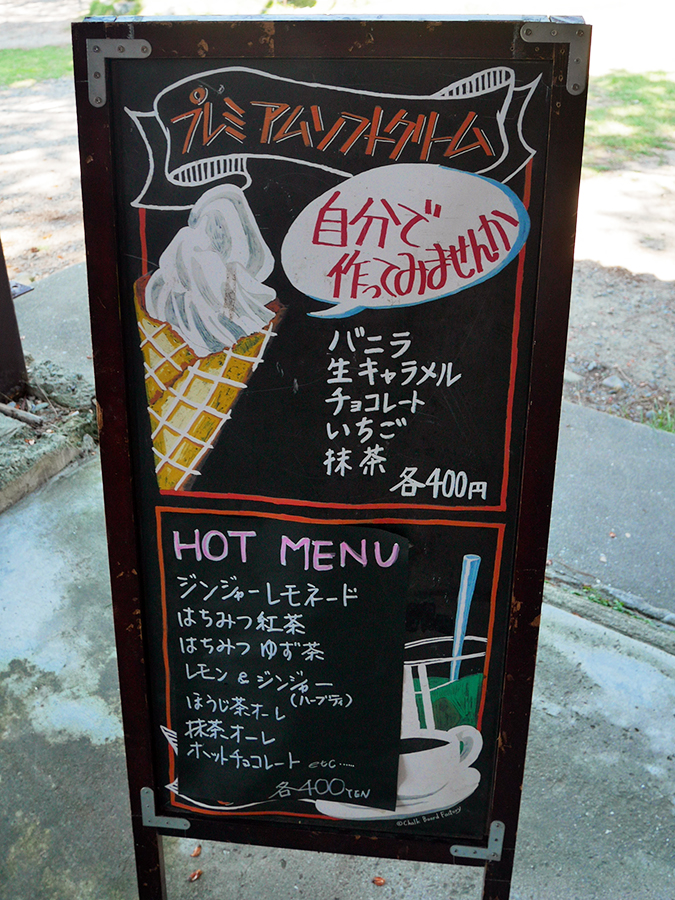 プレミアムソフトクリーム
自分で
作ってみませんか
バニラ
生キャラメル
チョコレート
いちご
抹茶
各400円
HOT MENU
ジンジャーレモネード
はちみつ紅茶
はちみつゆず茶
レモン&ジンジャー
(ハーブティ)
ほうじ茶オーレ
抹茶オーレ
ホットチョコレート etc.....
各400YEN
©Chalk Board Factory